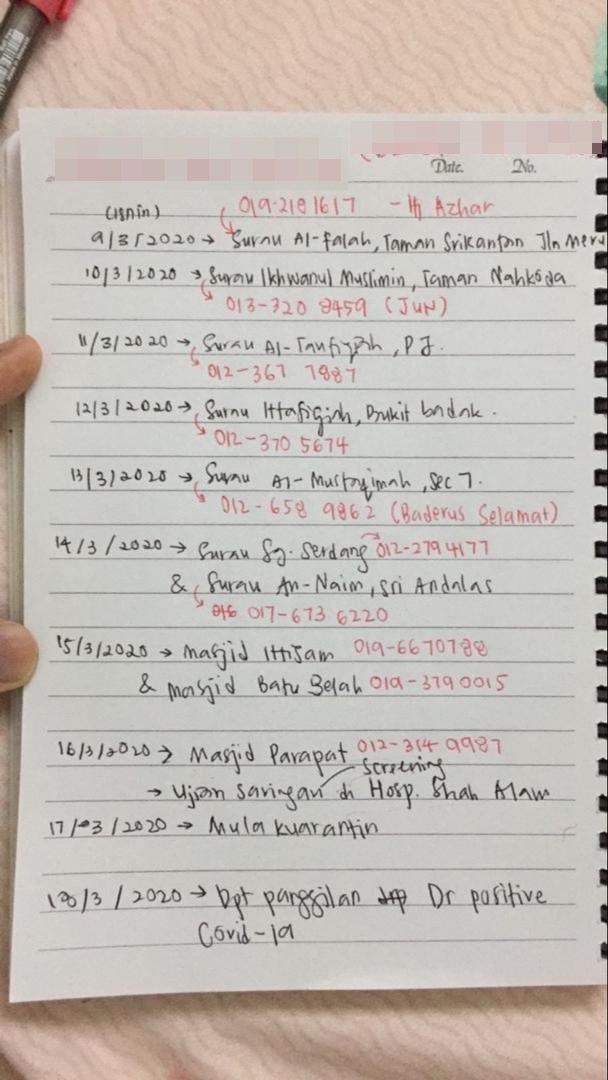 Date. No.
(Isnin) 019-2181617 - Hj Azhar
9/3/2020 → Surau Al-falah, Taman Srikanton Jln Meru
10/3/2020 → Surau Ikhwanul Muslimin, Taman Nahkoda
013-320 8459 (JUN)
11/3/2020 → Surau Al-Taufiqiah, PJ.
012-367 7887
12/3/2020 → Surau Ittafiqiah, Bukit badak.
012-370 5674
13/3/2020 → Surau Al-Mustaqimah, Sec 7.
012-658 9862 (Baderus Selamat)
14/3/2020 → Surau Sg. Serdang → 012-2794177
& Surau An-Naim, Sri Andalas
017-673 6220
15/3/2020 → masjid Ittisam 019-6670788
& Masjid Batu Belah 019-3790015
16/3/2020 → Masjid Parapat 012-314 9987
screening
→ Ujian saringan di Hosp. Shah Alam
17/03/2020 → Mula kuarantin
18/3/2020 → Dpt panggilan Dr positive
Covid-19